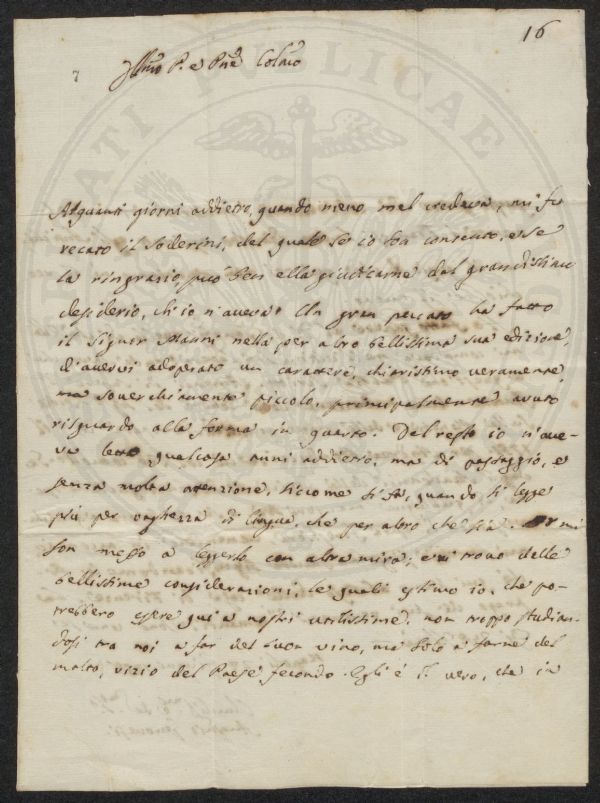 16
7
Illmo P. e Pne Colmo
Alquanti giorni addietro, quando meno mel credeva, mi fu
recato il Soderini, del quale se io son contento, e se
la ringrazio, può ben ella giudicarne dal grandissimo
desiderio, ch'io n'aveva. Un gran peccato ha fatto
il Signor Manni nella per altro bellissima sua edizione,
d'avervi adoperato un carattere, chiarissimo veramente,
ma soverchiamente piccolo, principalmente avuto
risguardo alla forma in quarto. Del resto io n'ave-
va letto qualcosa anni addietro, ma di passaggio, e
senza molta attenzione, siccome si fa, quando si legge
più per vaghezza di lingua, che per altro che sia. Or mi
son messo a leggerlo con altra mira; e vi trovo delle
bellissime considerazioni, le quali estimo io, che po-
trebbero essere qui a nostri utilissime, non troppo studian-
dosi tra noi a far del buon vino, ma solo a farne del
molto, vizio del Paese fecondo. Egli è il vero, che in